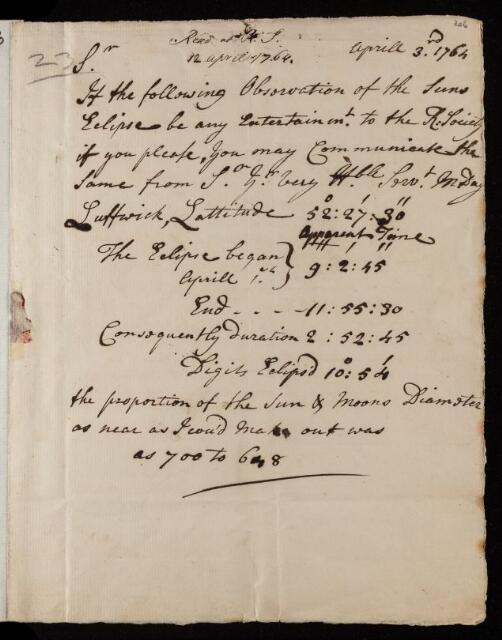 206
23
Read at R. S.
12 april 1764.
Aprill 3.rd 1764
S.r
If the following Observation of the Suns
Eclipse be any Entertainm.t to the R. Society
if you please, you may Communicate the
Same from S.r Y.r very H.ble Serv.t M Day
Luffwick, Lattitude 52° : 27' : 30"
apparent Time
The Eclipse began
Aprill 1.st } H ' "
9 : 2 : 45
End - - - 11 : 55 : 30
Consequently duration 2 : 52 : 45
Digits Eclips'd 10° : 54'
the proportion of the Sun & Moons Diameter
as near as I cou'd make out was
as 700 to 648